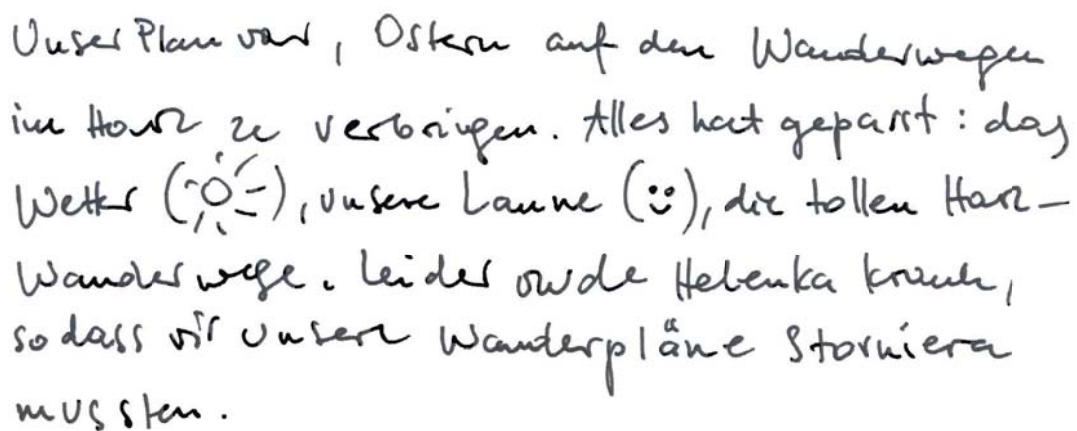 Unser Plan war, Ostern auf den Wanderwegen
im Harz zu verbringen. Alles hat gepasst: das
Wetter (☀), unsere Laune (☺), die tollen Harz-
Wanderwege. Leider wurde Helenka krank,
sodass wir unsere Wanderpläne stornieren
mussten.